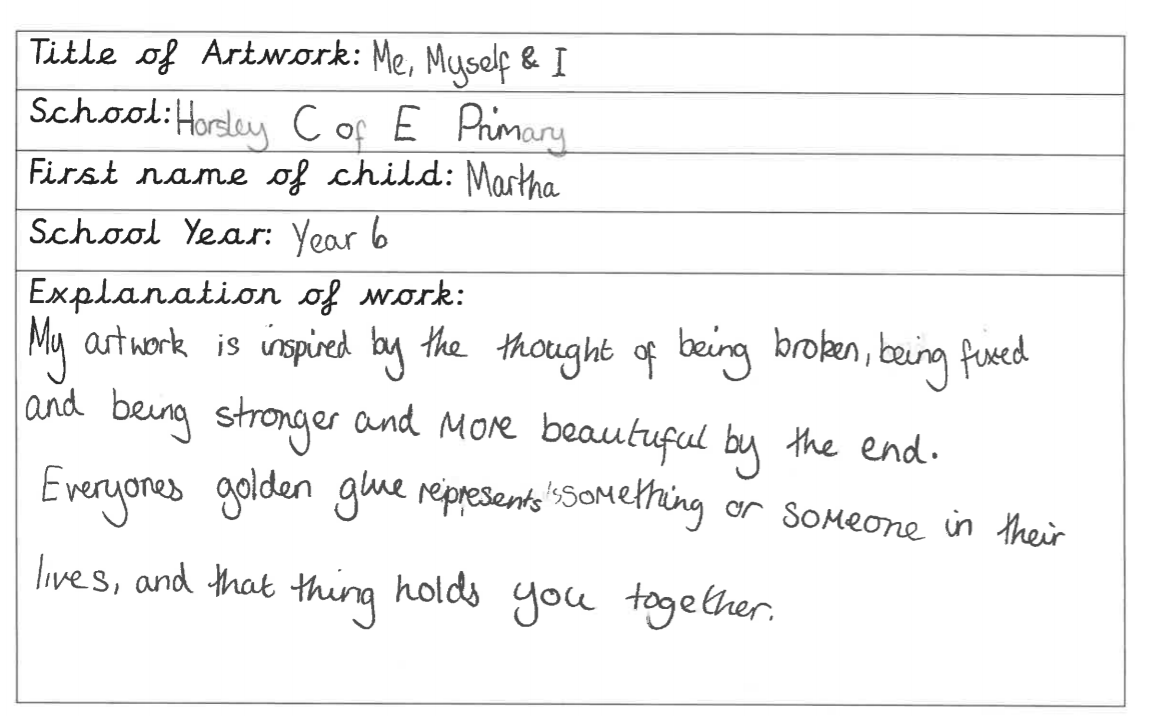 Title of Artwork: Me, Myself & I
School: Horsley C of E Primary
First name of child: Martha
School Year: Year 6
Explanation of work:
My artwork is inspired by the thought of being broken, being fixed
and being stronger and more beautuful by the end.
Everyones golden glue represents something or someone in their
lives, and that thing holds you together.